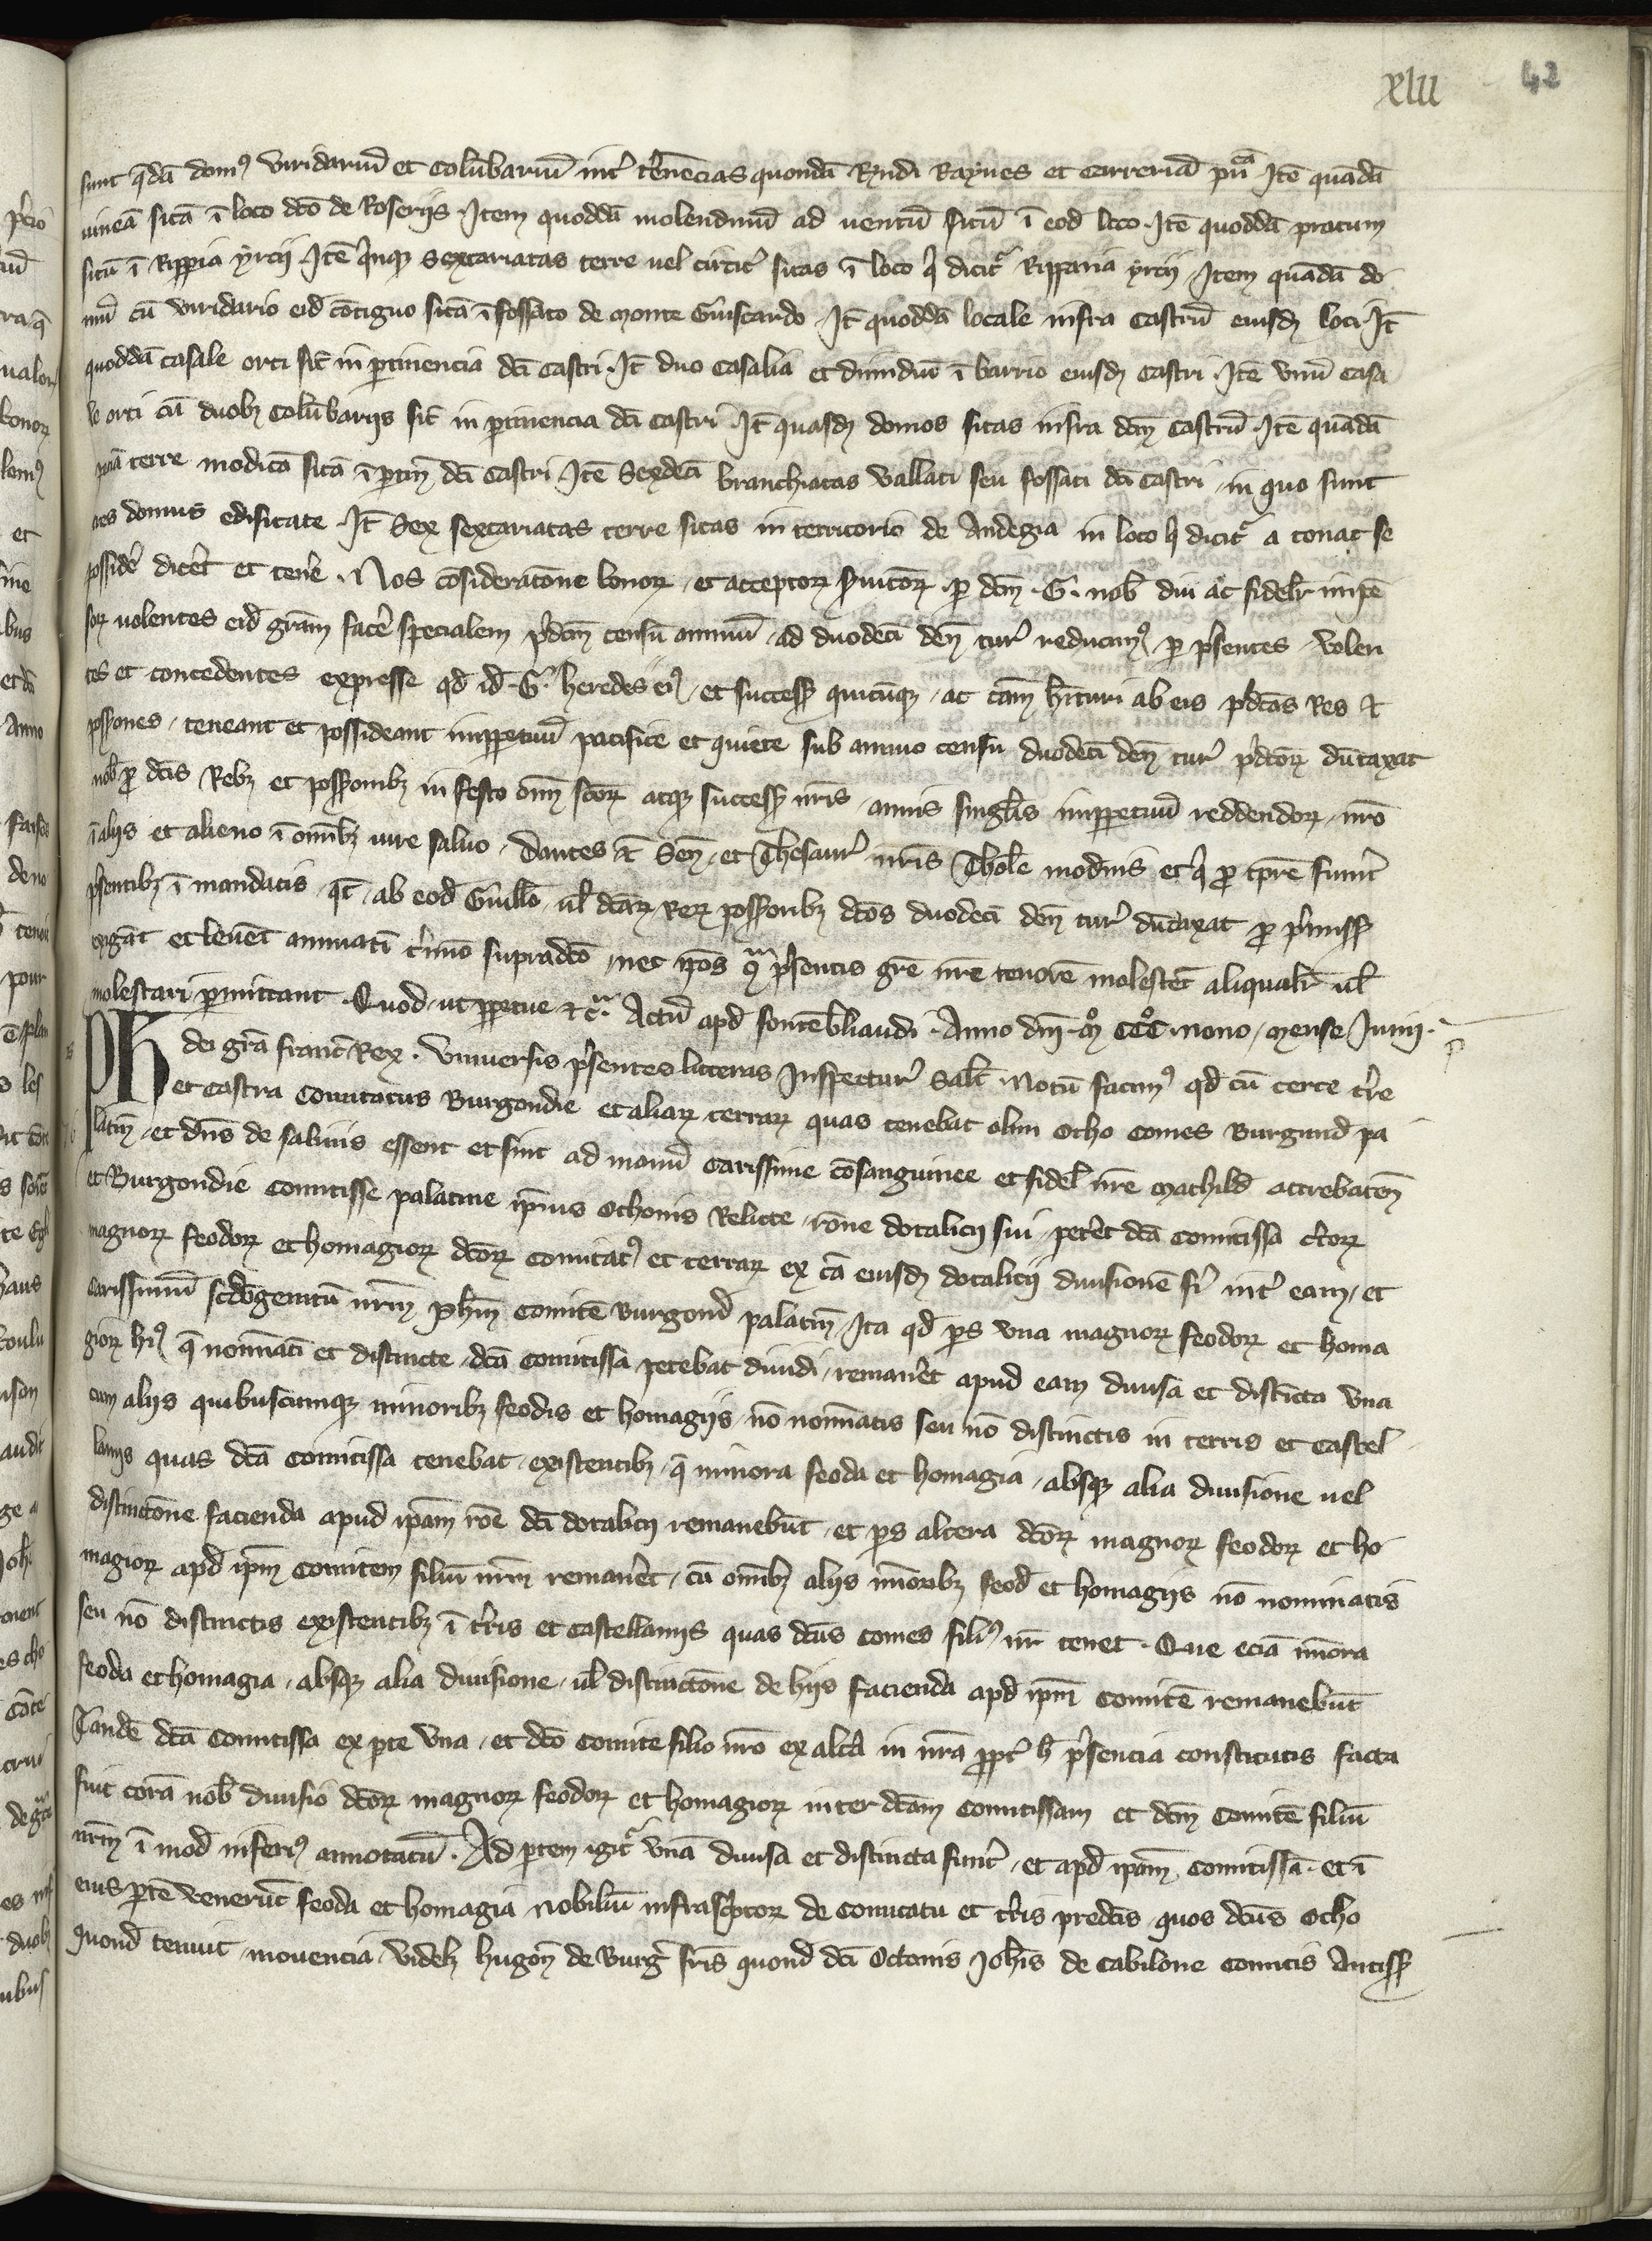 xlii 42
sunt q̄dā domꝰ viridariū et colūbariū int̄ t̄renēcias quondā Rȳdi Raynes et carreriā pu͞cā Itē quādā
vineā sitā ī loco dc̄o de Roseriis. Item quoddā molendinū ad ventū sitū ī eod̄ loco. Itē quoddā pratum
sitū ī Rip̄pia yrcii. Itē q̄nqȝ sextariatas terre uel circit̄ sitas ī loco q̄ dicit᷑ Ripparia yrcii. Item quādā do
mū cū viridario eid̄ cōtiguo sitā ī fossato de monte Guiscardo. It̄ quoddā locale infra castrū eiusdȝ loci. It̄
quoddā casale orti sit̄ in ꝑtinencia dc̄i castri. It̄ duo casalia et dimidiū ī barrio eiusdȝ castri. Itē vnū casa
le orti cū duobȝ colūbariis sit̄ in ꝑtinencia dc̄i castri It̄ quasdȝ domos sitas infra dc̄m castrū. Itē quādā
terre modicā sitā ī ꝑtin̄ dc̄i castri. Itē sexdecī branchiatas vallati seu fossati dc̄i castri, in quo sunt
domus edificate. It̄ sex sextariatas terre sitas in territorio de Andegia in loco q̄ dicit᷑ a conat se
possidē dicēt et tenē. Nos cōsideratōne bonoꝝ et acceptoꝝ ẜuitōꝝ ꝑ dc̄m .G. nob̄ diu ac fidelr̄ impē
soꝝ volentes eid̄ grām facē specialem p̄dc̄m censū annuū, ad duodecī den̄ tur̄ reducimꝰ ꝑ p̄sentes volen
tes et concedentes expresse qd̄ id̄ .G. heredes eiꝰ, et success̄ quicūqȝ, ac cām hīturi ab eis p̄dc̄as Res et
poss̄iones, teneant et possideant imppetuū pacifice et quiete sub annuo censu duodecī den̄ tur̄ p̄dc̄oꝝ dūtaxat
nob̄ ꝓ dc̄is Rebȝ et poss̄ionibȝ in festo om̄ sc̄oꝝ atqȝ success̄ nr̄is annis singl̄is imppetuū reddendoꝝ, nr̄o
ī aliis et alieno ī om̄ibȝ iure saluo. Dantes et Sen̄, et Thesaur̄ nr̄is Thol̄e modnis et q̄ ꝓ tp̄re fuīnt
p̄sentibȝ ī mandatis, qt̄ ab eod̄ Guill̄o, ul̄ dc̄aꝝ Reꝝ poss̄oribȝ dc̄os duodecī den̄ tur̄ dūtaxat ꝓ p̄miss̄
exigāt et leuēt annuatī t̄mino supradc̄o, nec ip̄os ꝯᷓ p̄sentis grē nr̄e tenorē molestēt aliqualr̄ ul̄
molestari ꝑmittant. Quod ut ꝑpetue etc̄. Actū apd̄ fontēbliaudi. Anno dn̄i .mͦ. CCCͦ. nono, mense Iunii.
PH dei gr̄a franc̄ Rex. Vniuersis p̄sentes litteras Inspectur̄ salt̄. Notū facimꝰ qd̄ cū certe t̄re
et castra comitatus Burgondie et aliaꝝ terraꝝ quas tenebat olim Otho comes Burgund̄ pa
latin̄, et dn̄s de salinis essent et sint ad manū carissime cōsanguinee et fidel̄ nr̄e Mathild̄ attrebatēn̄
et Burgondie comitisse palatine ip̄ius Othonis relicte, rōne dotalicii sui, petēt dc̄a comitissa c̄toꝝ
magnoꝝ feodoꝝ et homagioꝝ dc̄oꝝ comitatꝰ et terraꝝ ex cā eiusdȝ dotalicii diuisionē fi᷑ int̄ eam, et
carissimū sc̄dogenitū nr̄m ph̄m comitē Burgond̄ palatin̄, Ita qd̄ ꝑs vna magnoꝝ feodoꝝ et homa
gioꝝ hꝰ q̄ noīnatī et distincte, dc̄a comitissa petebat diuidi, remanēt apud eam diuisa et distīcta vna
cum aliis quibuscumqȝ minoribȝ feodis et homagiis, nō noīnatis seu nō distinctis in terris et castel
laniis quas dc̄a comitissa tenebat, existentibȝ, q̄ minora feoda et homagia, absqȝ alia diuisione uel
distinctōne facienda apud ip̄am rōe dc̄i dotalicii remanebūt, et ꝑs altera dc̄oꝝ magnoꝝ feodoꝝ et ho
magioꝝ apd̄ ip̄m comitem filiū nr̄m remanēt, cū om̄ibȝ aliis mīoribȝ feod̄ et homagiis nō nominatis
seu nō distinctis existentibȝ ī t̄ris et castellaniis quas dc̄us comes filiꝰ nr̄ tenet. Que eciā mīora
feoda et homagia, absqȝ alia diuisione, ul̄ distinctōne de hiis facienda apd̄ ip̄m comitē remanebūt
Tandē dc̄a comitissa ex ꝑte vna, et dc̄o comite filio nr̄o ex alt̄a in nr̄a ꝓpt̄ h̄ p̄sencia constitutis facta
fuit corā nob̄ diuisio dc̄oꝝ magnoꝝ feodoꝝ et homagioꝝ inter dc̄am comitissam et dc̄m comitē filiū
nr̄m ī mod̄ inferiꝰ annotatū. Ad ꝑtem igit᷑ vnā diuisa et distincta fuīnt, et apd̄ ip̄am comitissā. et ī
eius ꝑtē venerūt feoda et homagia nobiliū infrasc̄ptoꝝ de comitatu et t̄ris predc̄is quos dc̄us Otho
quond̄ tenuit, mouencia, videlȝ hugon̄ de Burḡ fr̄is quond̄ dc̄i Octonis Joh̄is de Cabilone comitis Antiss̄